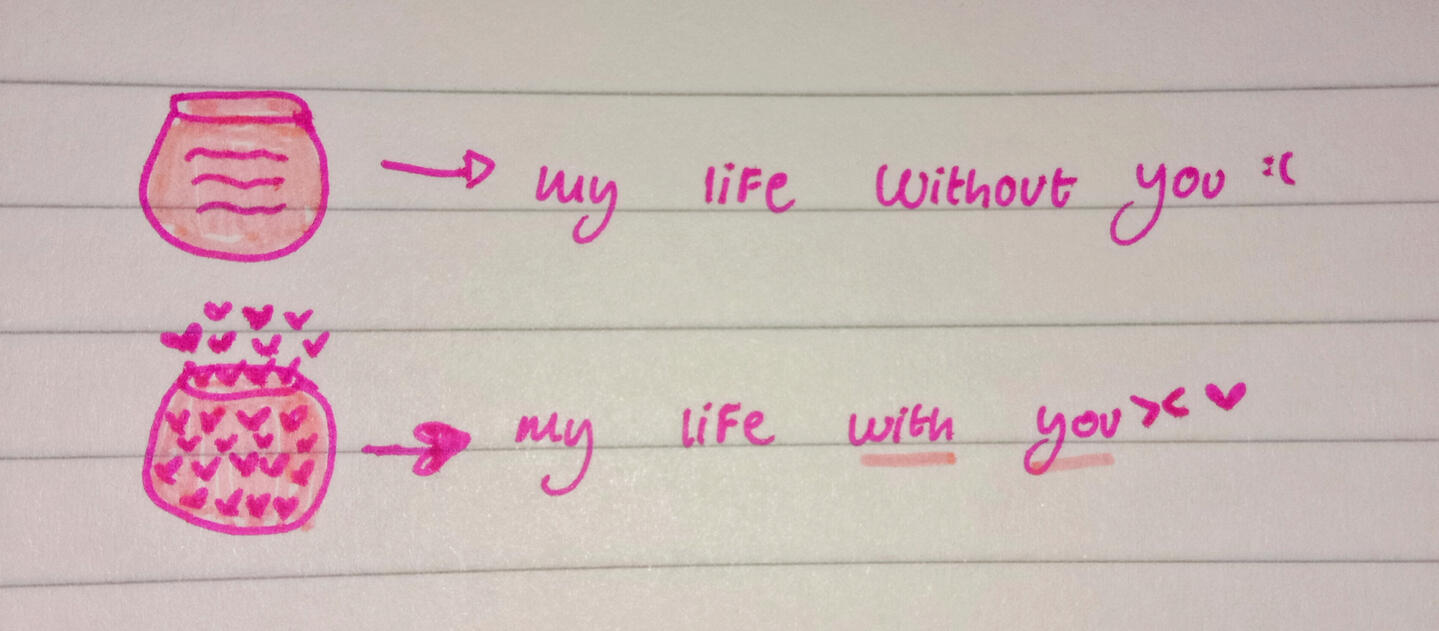 my life without you :(
my life with you >< ♥